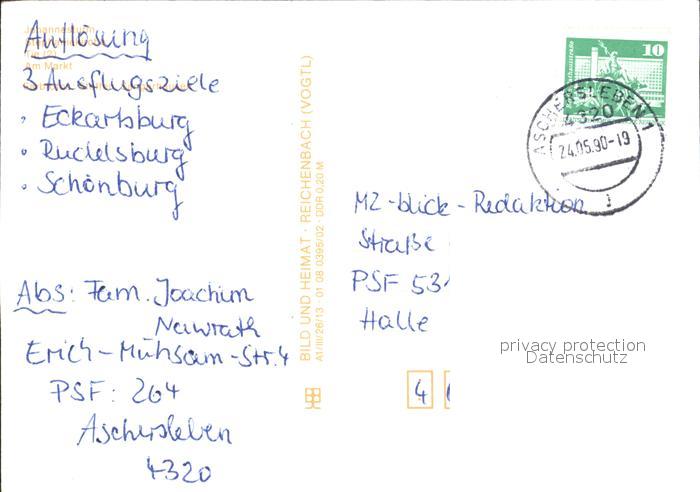 Auflösung
Am Markt
3 Ausflugsziele
• Eckartsburg
• Rudelsburg
• Schönburg
Abs: Fam. Joachim
Nawrath
Erich-Mühsam-Str. 4
PSF: 264
Aschersleben
4320
BILD UND HEIMAT · REICHENBACH (VOGTL)
A1/III/26/13 · 01 08 0395/02 · DDR 0,20 M
10
ASCHERSLEBEN 1
4320
24.05.90-19
MZ-blick-Redaktion
Straße
PSF 53
Halle
4
privacy protection
Datenschutz